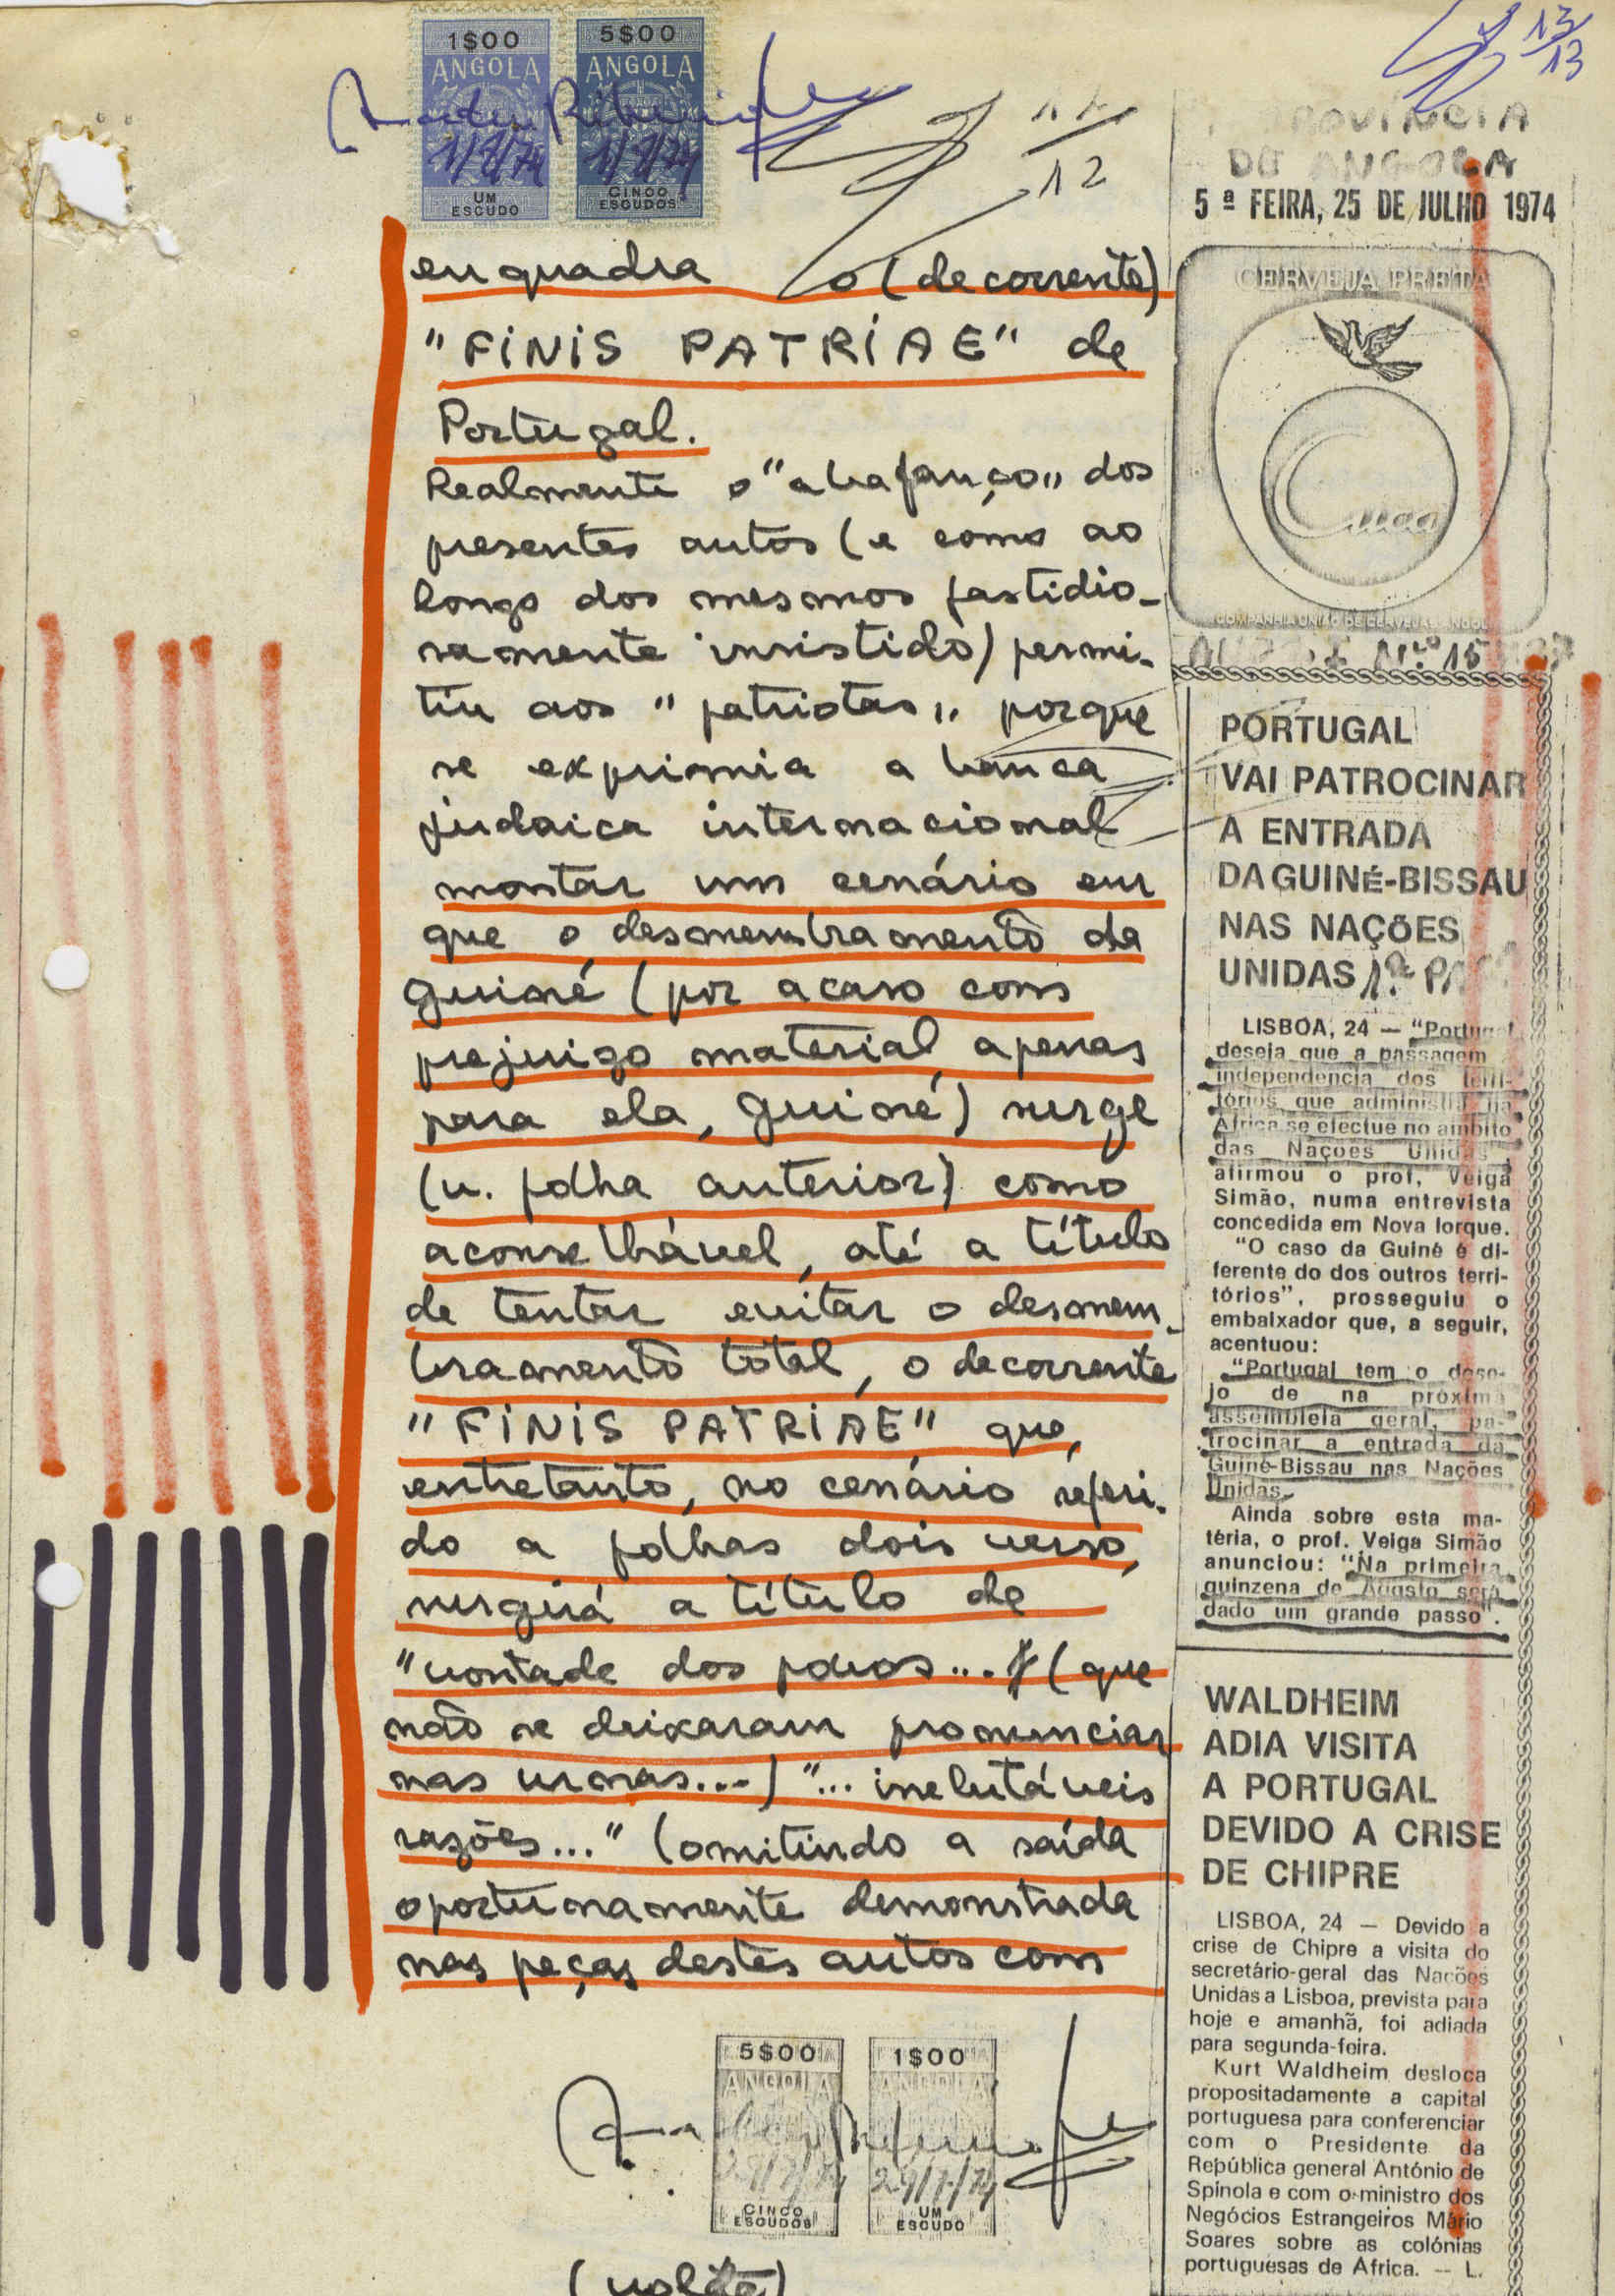 1$00
ANGOLA
UM
ESCUDO
5$00
ANGOLA
CINCO
ESCUDOS
13/13
12
PROVÍNCIA
DE ANGOLA
5ª FEIRA, 25 DE JULHO 1974
CERVEJA PRETA
Cuca
COMPANHIA UNIÃO DE CERVEJAS ANGOLA
N.º 15
enquadra o (decorrente)
"FINIS PATRIAE" de
Portugal.
Realmente o "abafanço" dos
presentes autos (e como ao
longo dos mesmos fastidio-
samente insistido) permi-
tiu aos "patriotas" porque
se exprimia a banca
judaica internacional
montar um cenário em
que o desmembramento da
Guiné (por acaso com
prejuizo material apenas
para ela, Guiné) surge
(v. folha anterior) como
aconselhável, até a título
de tentar evitar o desmem-
bramento total, o decorrente
"FINIS PATRIAE" que,
entretanto, no cenário referi-
do a folhas dois verso,
surgirá a título de
"vontade dos povos..." (que
não se deixaram pronunciar
nas urnas...) "... inelutáveis
razões..." (omitindo a saída
oportunamente demonstrada
nas peças destes autos com
5$00
ANGOLA
29/7/74
CINCO
ESCUDOS
1$00
ANGOLA
29/7/74
UM
ESCUDO
(volta)
PORTUGAL
VAI PATROCINAR
A ENTRADA
DA GUINÉ-BISSAU
NAS NAÇÕES
UNIDAS 1.ª
LISBOA, 24 — "Portugal
deseja que a passagem à
independencia dos terri-
tórios que administra na
Africa se efectue no ambito
das Nações Unidas",
afirmou o prof. Veiga
Simão, numa entrevista
concedida em Nova Iorque.
"O caso da Guiné é di-
ferente do dos outros terri-
tórios", prosseguiu o
embaixador que, a seguir,
acentuou:
"Portugal tem o dese-
jo de na próxima
assembleia geral, pa-
trocinar a entrada da
Guiné-Bissau nas Nações
Unidas.
Ainda sobre esta ma-
téria, o prof. Veiga Simão
anunciou: "Na primeira
quinzena de Agosto será
dado um grande passo".
WALDHEIM
ADIA VISITA
A PORTUGAL
DEVIDO A CRISE
DE CHIPRE
LISBOA, 24 — Devido a
crise de Chipre a visita do
secretário-geral das Nações
Unidas a Lisboa, prevista para
hoje e amanhã, foi adiada
para segunda-feira.
Kurt Waldheim desloca
propositadamente a capital
portuguesa para conferenciar
com o Presidente da
República general António de
Spínola e com o ministro dos
Negócios Estrangeiros Mário
Soares sobre as colónias
portuguesas de Africa. — L.